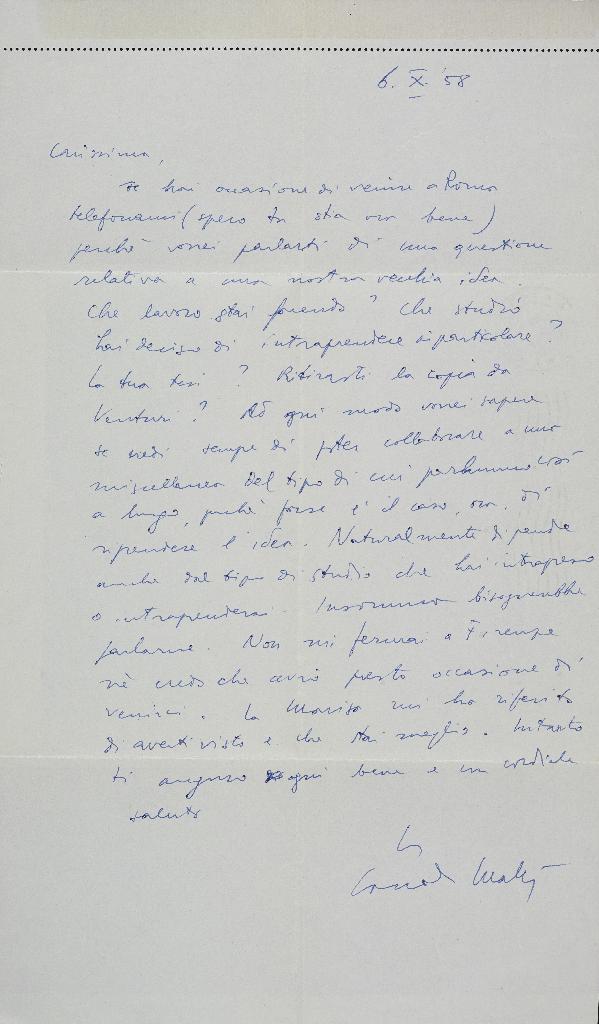 6. X. '58
Carissima,
se hai occasione di venire a Roma
telefonami (spero tu stia ora bene)
perché vorrei parlarti di una questione
relativa a una nostra vecchia idea.
Che lavoro stai facendo? Che studio
hai deciso di intraprendere in particolare?
La tua tesi? Ritirasti la copia da
Venturi? Ad ogni modo vorrei sapere
se credi sempre di poter collaborare a una
miscellanea del tipo di cui parlammo così
a lungo, perché forse è il caso, ora, di
riprendere l'idea. Naturalmente dipende
anche dal tipo di studio che hai intrapreso
o intraprenderai. Insomma bisognerebbe
parlarne. Non mi fermai a Firenze
né credo che avrò presto occasione di
venirci. La Marisa mi ha riferito
di averti visto e che stai meglio. Intanto
ti auguro ogni bene e un cordiale
saluto
Corrado Maltese